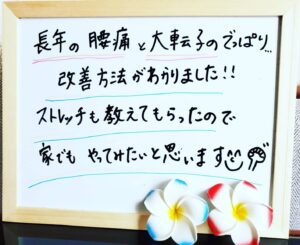 長年の腰痛と大転子のでっぱり...
改善方法がわかりました!!
ストレッチも教えてもらったので
家でもやってみたいと思います